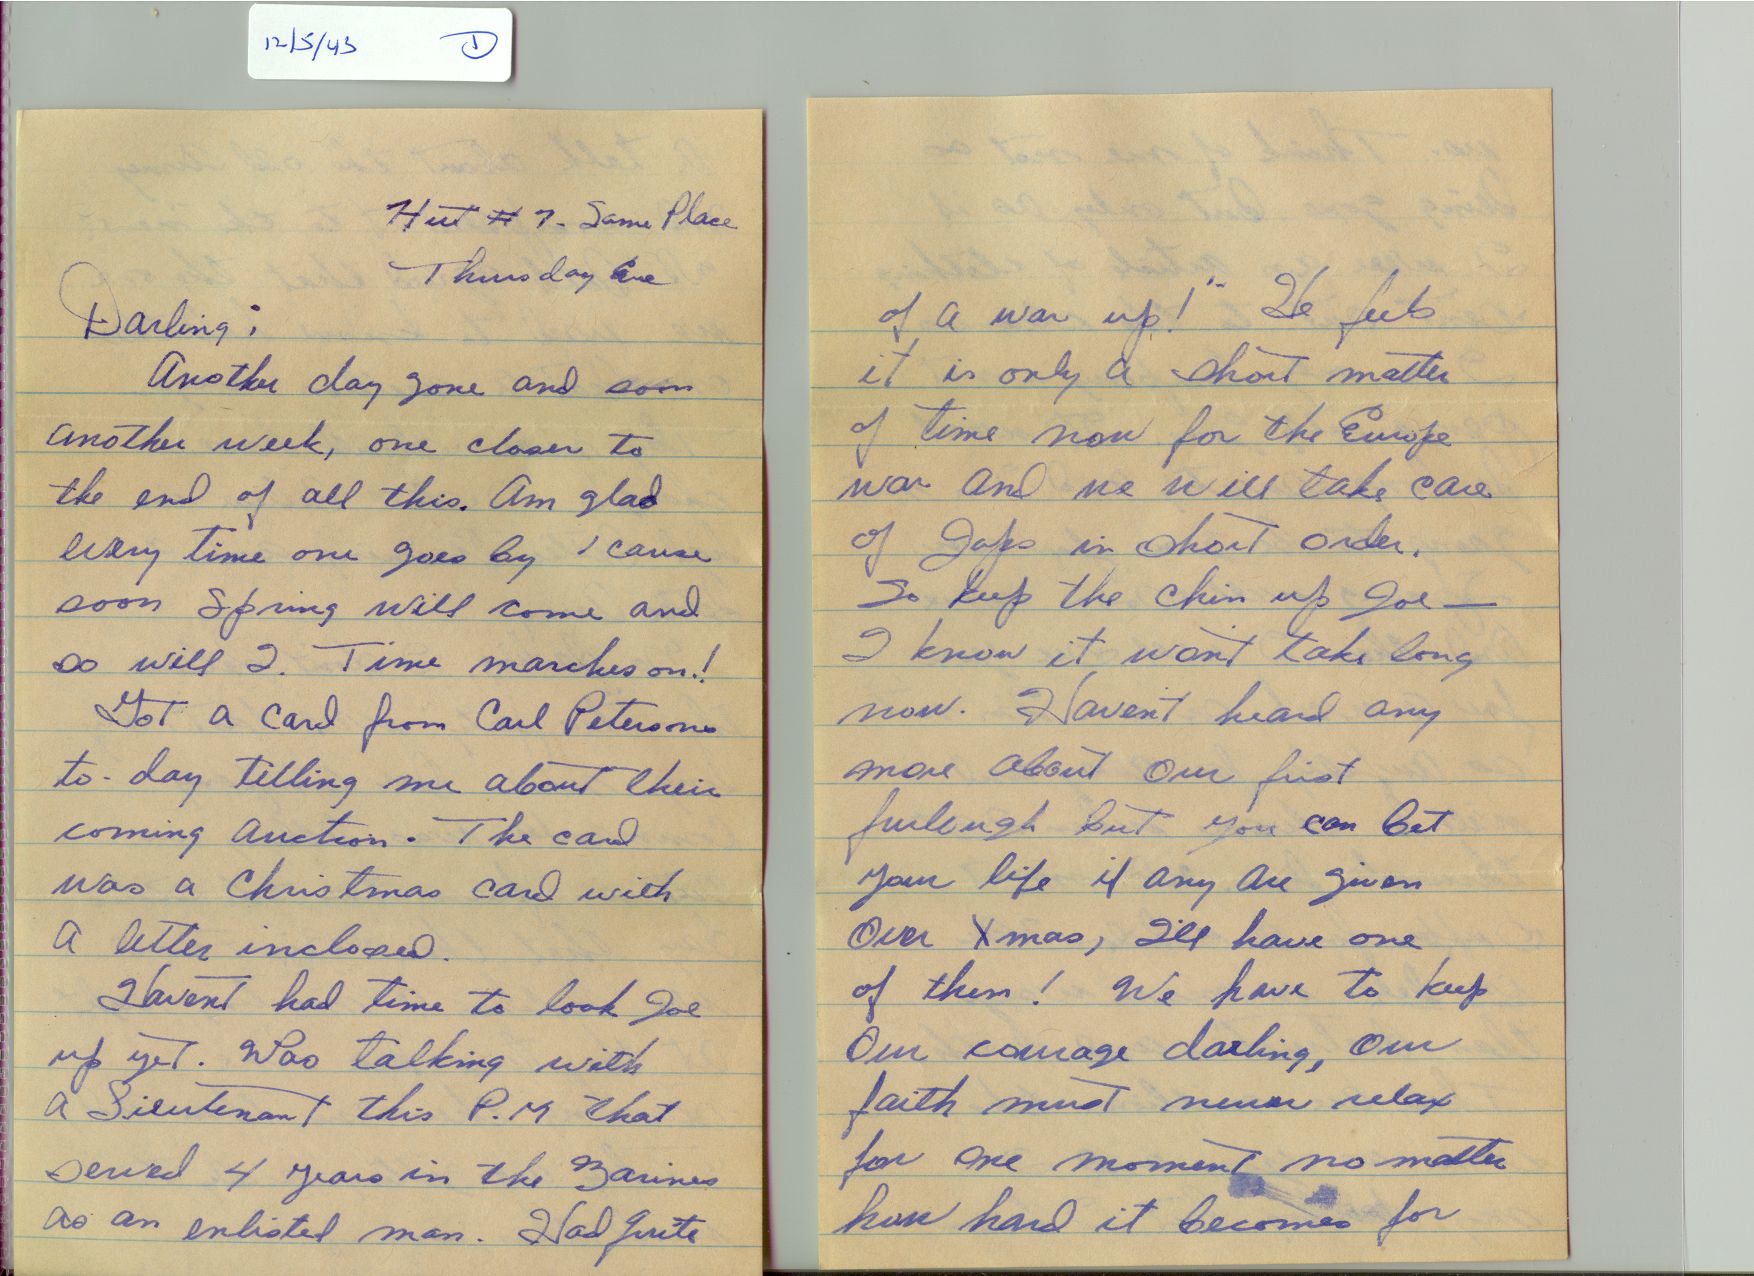 12/5/43 D
Hut # 7 - Same Place
Thursday Eve
Darling:
Another day gone and soon
another week, one closer to
the end of all this. Am glad
every time one goes by 'cause
soon Spring will come and
so will I. Time marches on!
Got a card from Carl Petersons
to-day telling me about their
coming auction. The card
was a Christmas card with
a letter inclosed.
Havent had time to look Joe
up yet. Was talking with
a Lieutenant this P.M that
served 4 years in the Marines
as an enlisted man. Had quite
of a war up!" He feels
it is only a short matter
of time now for the Europe
war and we will take care
of Japs in short order.
So keep the chin up Joe—
I know it won't take long
now. Haven't heard any
more about our first
furlough but you can bet
your life if any are given
over Xmas, I'll have one
of them! We have to keep
our courage darling, our
faith must never relax
for one moment no matter
how hard it becomes for